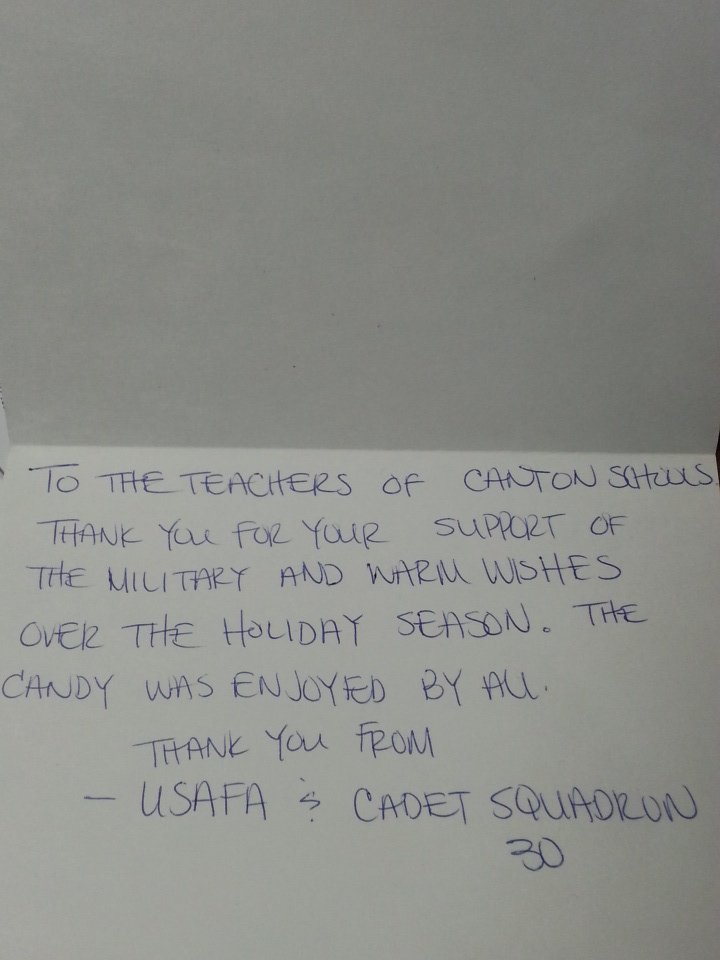 TO THE TEACHERS OF CANTON SCHOOLS.
THANK YOU FOR YOUR SUPPORT OF
THE MILITARY AND WARM WISHES
OVER THE HOLIDAY SEASON. THE
CANDY WAS ENJOYED BY ALL.
THANK YOU FROM
- USAFA & CADET SQUADRON
30